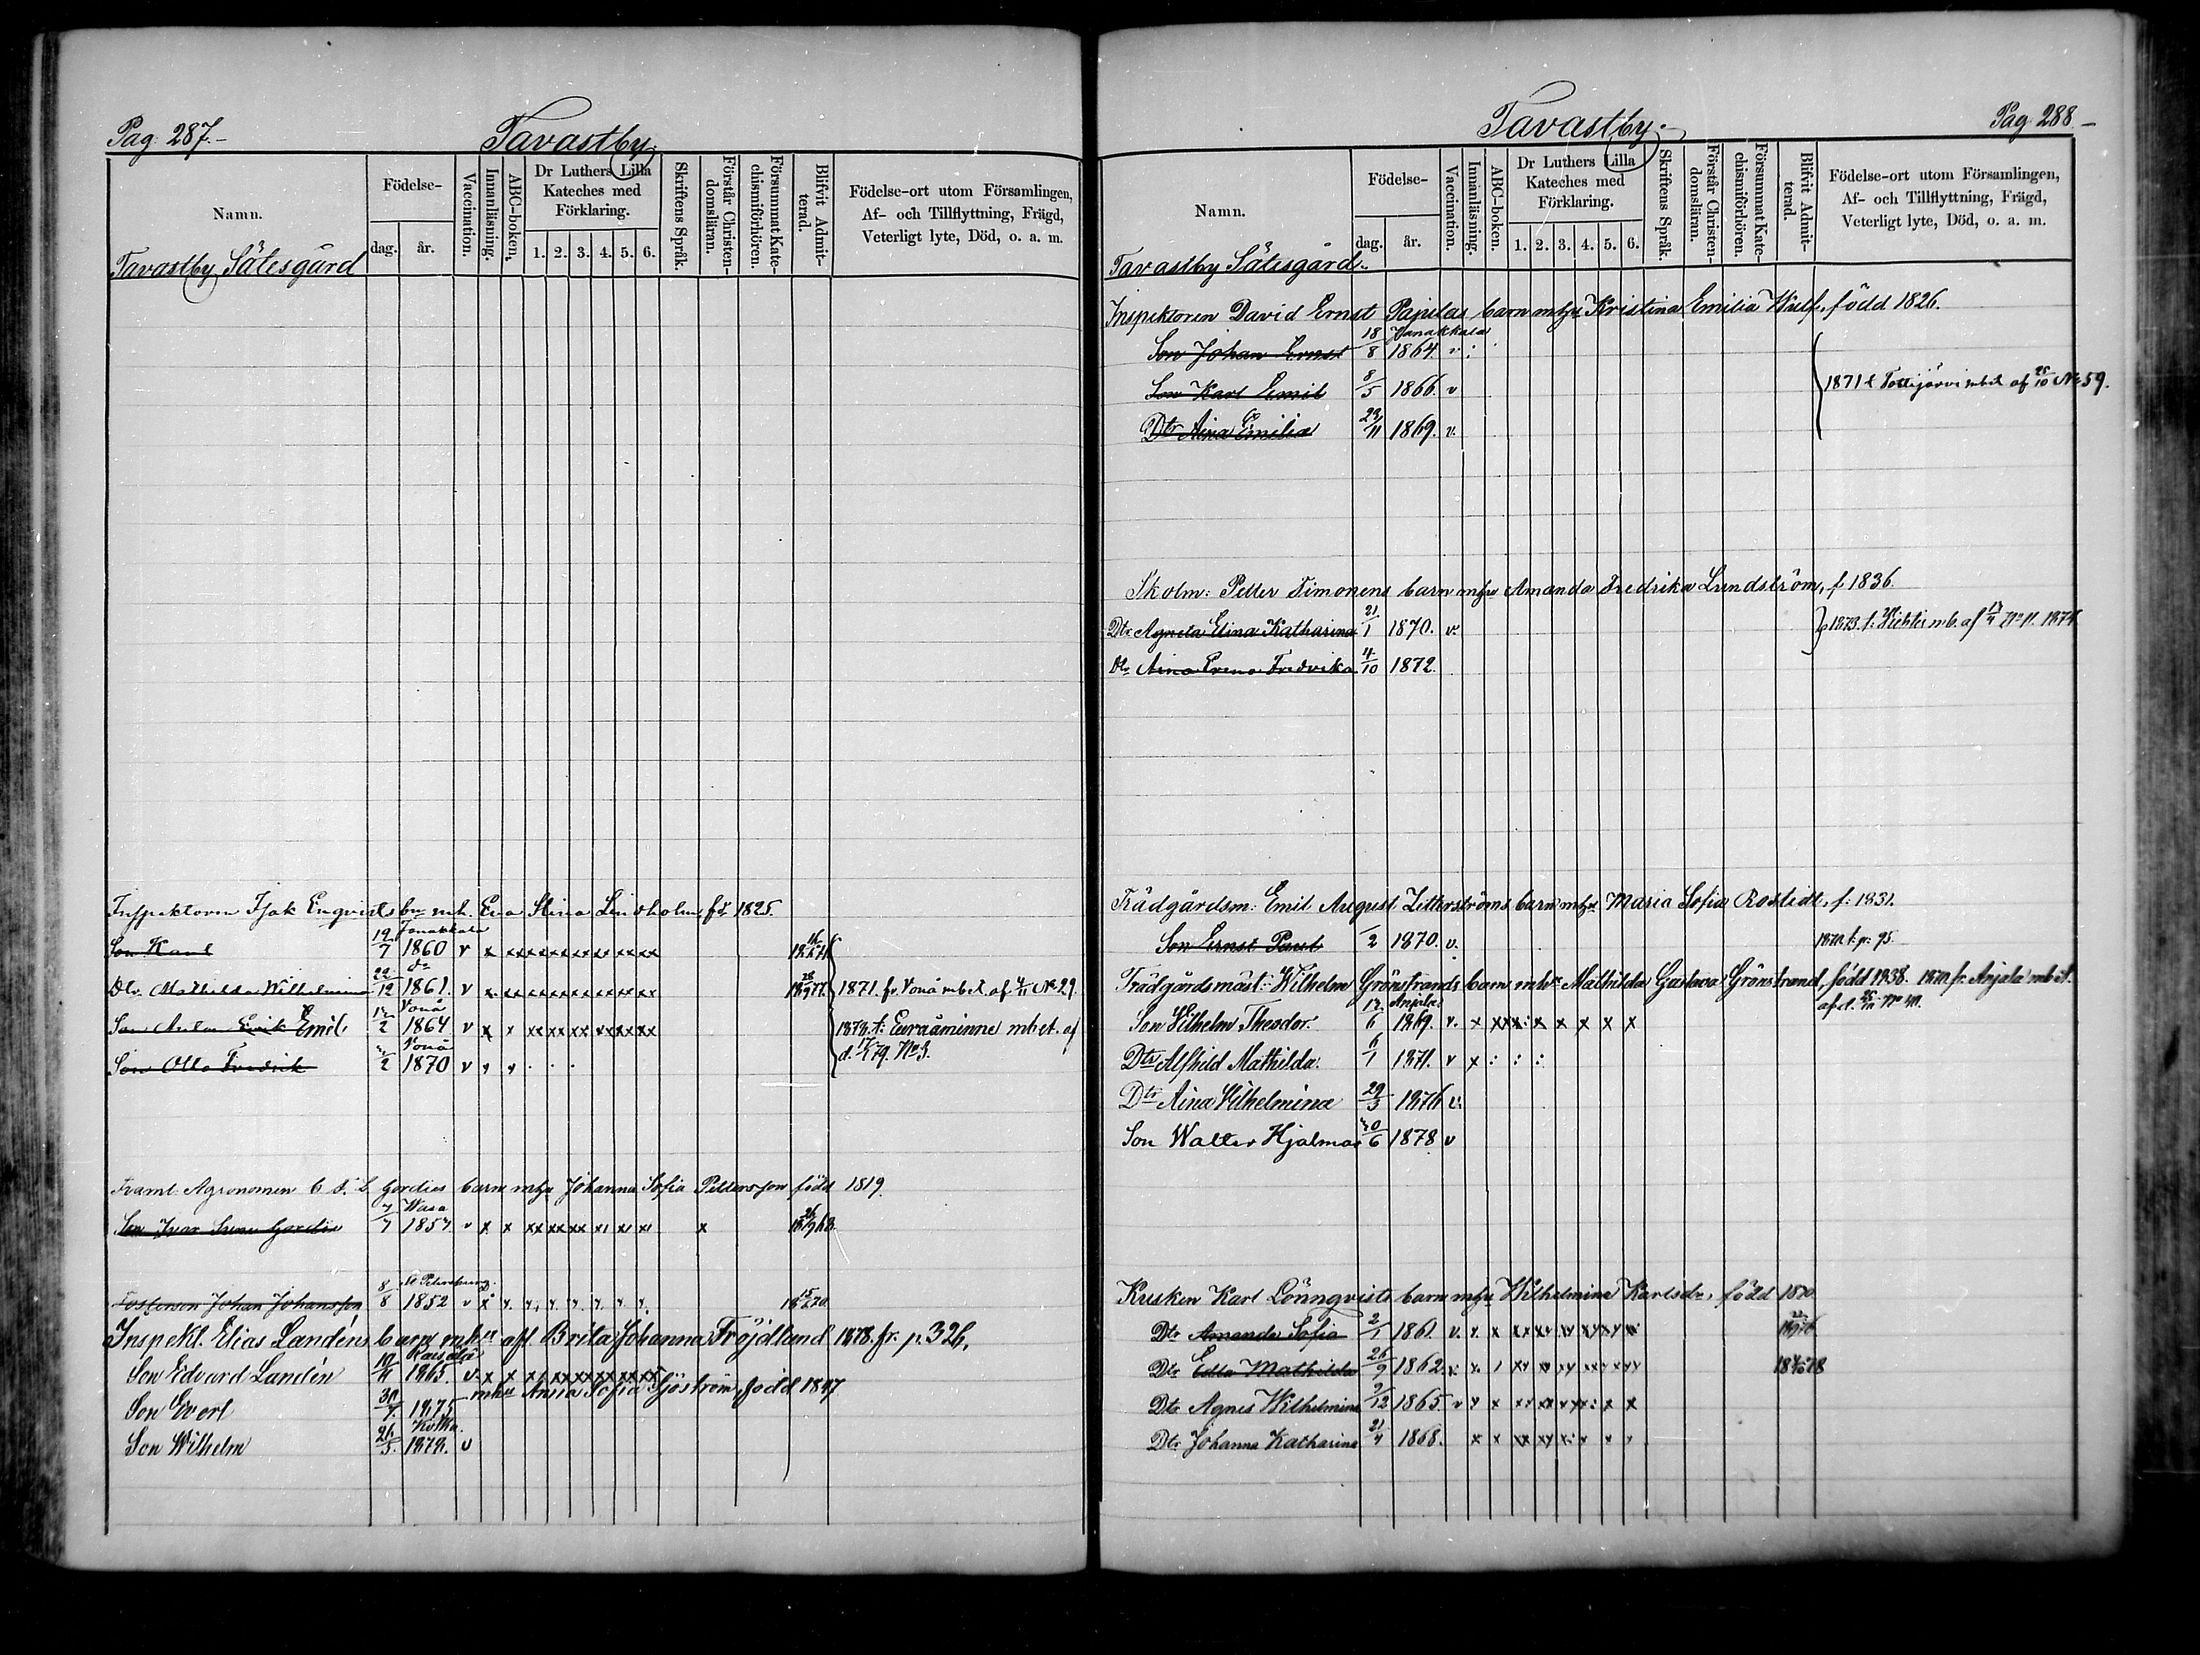 Pag: 287.
Tavastby.
Namn.
Födelse-
dag.
år.
Vaccination.
Innanläsning.
ABC-boken.
Dr Luthers Lilla
Kateches med
Förklaring.
1. 2. 3. 4. 5. 6.
Skriftens Språk.
Förstår Christen-
domsläran.
Försummat Kate-
chismiförhören.
Blifvit Admit-
terad.
Födelse-ort utom Församlingen,
Af- och Tillflyttning, Frägd,
Veterligt lyte, Död, o. a. m.
Tavastby Sätesgård
Inspektoren Isak Enqvists bn mh. Eva Stina Lindholm, fd 1825.
Janakkala
Son Karl 19/7 1860 v
Dtr. Mathilda Wilhelmina 22/12 1861. v 1871. fr. Vonå mbet. af 4/11 No 29.
Vonå
Son Anton Erik Emil 2 1864 v 1878. t. Euraåminne mbet. af
Vonå d. 17/1 79. No 3.
Son Otto Fredrik 2 1870 v
Framl. Agronomen Gordies barn mhu Johanna Sofia Pettersson född 1819.
Wasa
Son Ivar Gordie 7/7 1857 v
St Petersburg
Fostersson Johan Johansson 8/8 1852 v
Inspekt. Elias Landéns barn mhu afl. Brita Johanna Fröjdlund 1878. fr. p. 326.
Son Edvard Landén 10/11 1865. v
mhu Anna Sofia Sjöström, född 1847
Son Evert 30 1875
Kotka.
Son Wilhelm 26/5. 1878. v
Pag: 288.
Tavastby.
Namn.
Födelse-
dag.
år.
Vaccination.
Innanläsning.
ABC-boken.
Dr Luthers Lilla
Kateches med
Förklaring.
1. 2. 3. 4. 5. 6.
Skriftens Språk.
Förstår Christen-
domsläran.
Försummat Kate-
chismiförhören.
Blifvit Admit-
terad.
Födelse-ort utom Församlingen,
Af- och Tillflyttning, Frägd,
Veterligt lyte, Död, o. a. m.
Tavastby Sätesgård.
Inspektoren David Ernst barn mhu Kristina Emilia Wulf, född 1826.
Janakkala
Son Johan Ernst 18/8 1864. v
Son Karl Emil 8/5 1866. v 1871 t. Tottijärvi mbet af 25/10 No 59.
Dtr Aina Emilia 23/11 1869. v.
Skolm: Petter Timonens barn mhu Amanda Fredrika Lundström, f. 1836.
Dtr Agneta Elina Katharina 21/1 1870. v. 1873. t. Vichtis mb. af No 11. 1874
Dtr Aina Irene Fredrika 4/10 1872.
Trädgårdsm: Emil August Zitterströms barn mhu Maria Sofia Rostedt, f: 1831.
Son Ernst Paul /2 1870. v. t. p: 95.
Trädgårdsmäst: Wilhelm Grönstrands barn mhu Mathilda Gustava Grönstrand, född 1838. fr. Anjala mbet.
Anjala
Son Wilhelm Theodor. 6 1869. v.
Dtr Alfhild Mathilda. 6/1 1871. v
Dtr Aina Wilhelmina 29/3 1876 v.
Son Walter Hjalmar 30/6 1878 v
Kusken Karl Lönnqvists barn mhu Wilhelmina Karlsdr, född
Dtr Amanda Sofia 2/1 1861. v.
Dtr Edla Mathilda 26/9 1862. v.
Dtr Agnes Wilhelmina 9/12 1865. v
Dtr Johanna Katharina 21 1868.